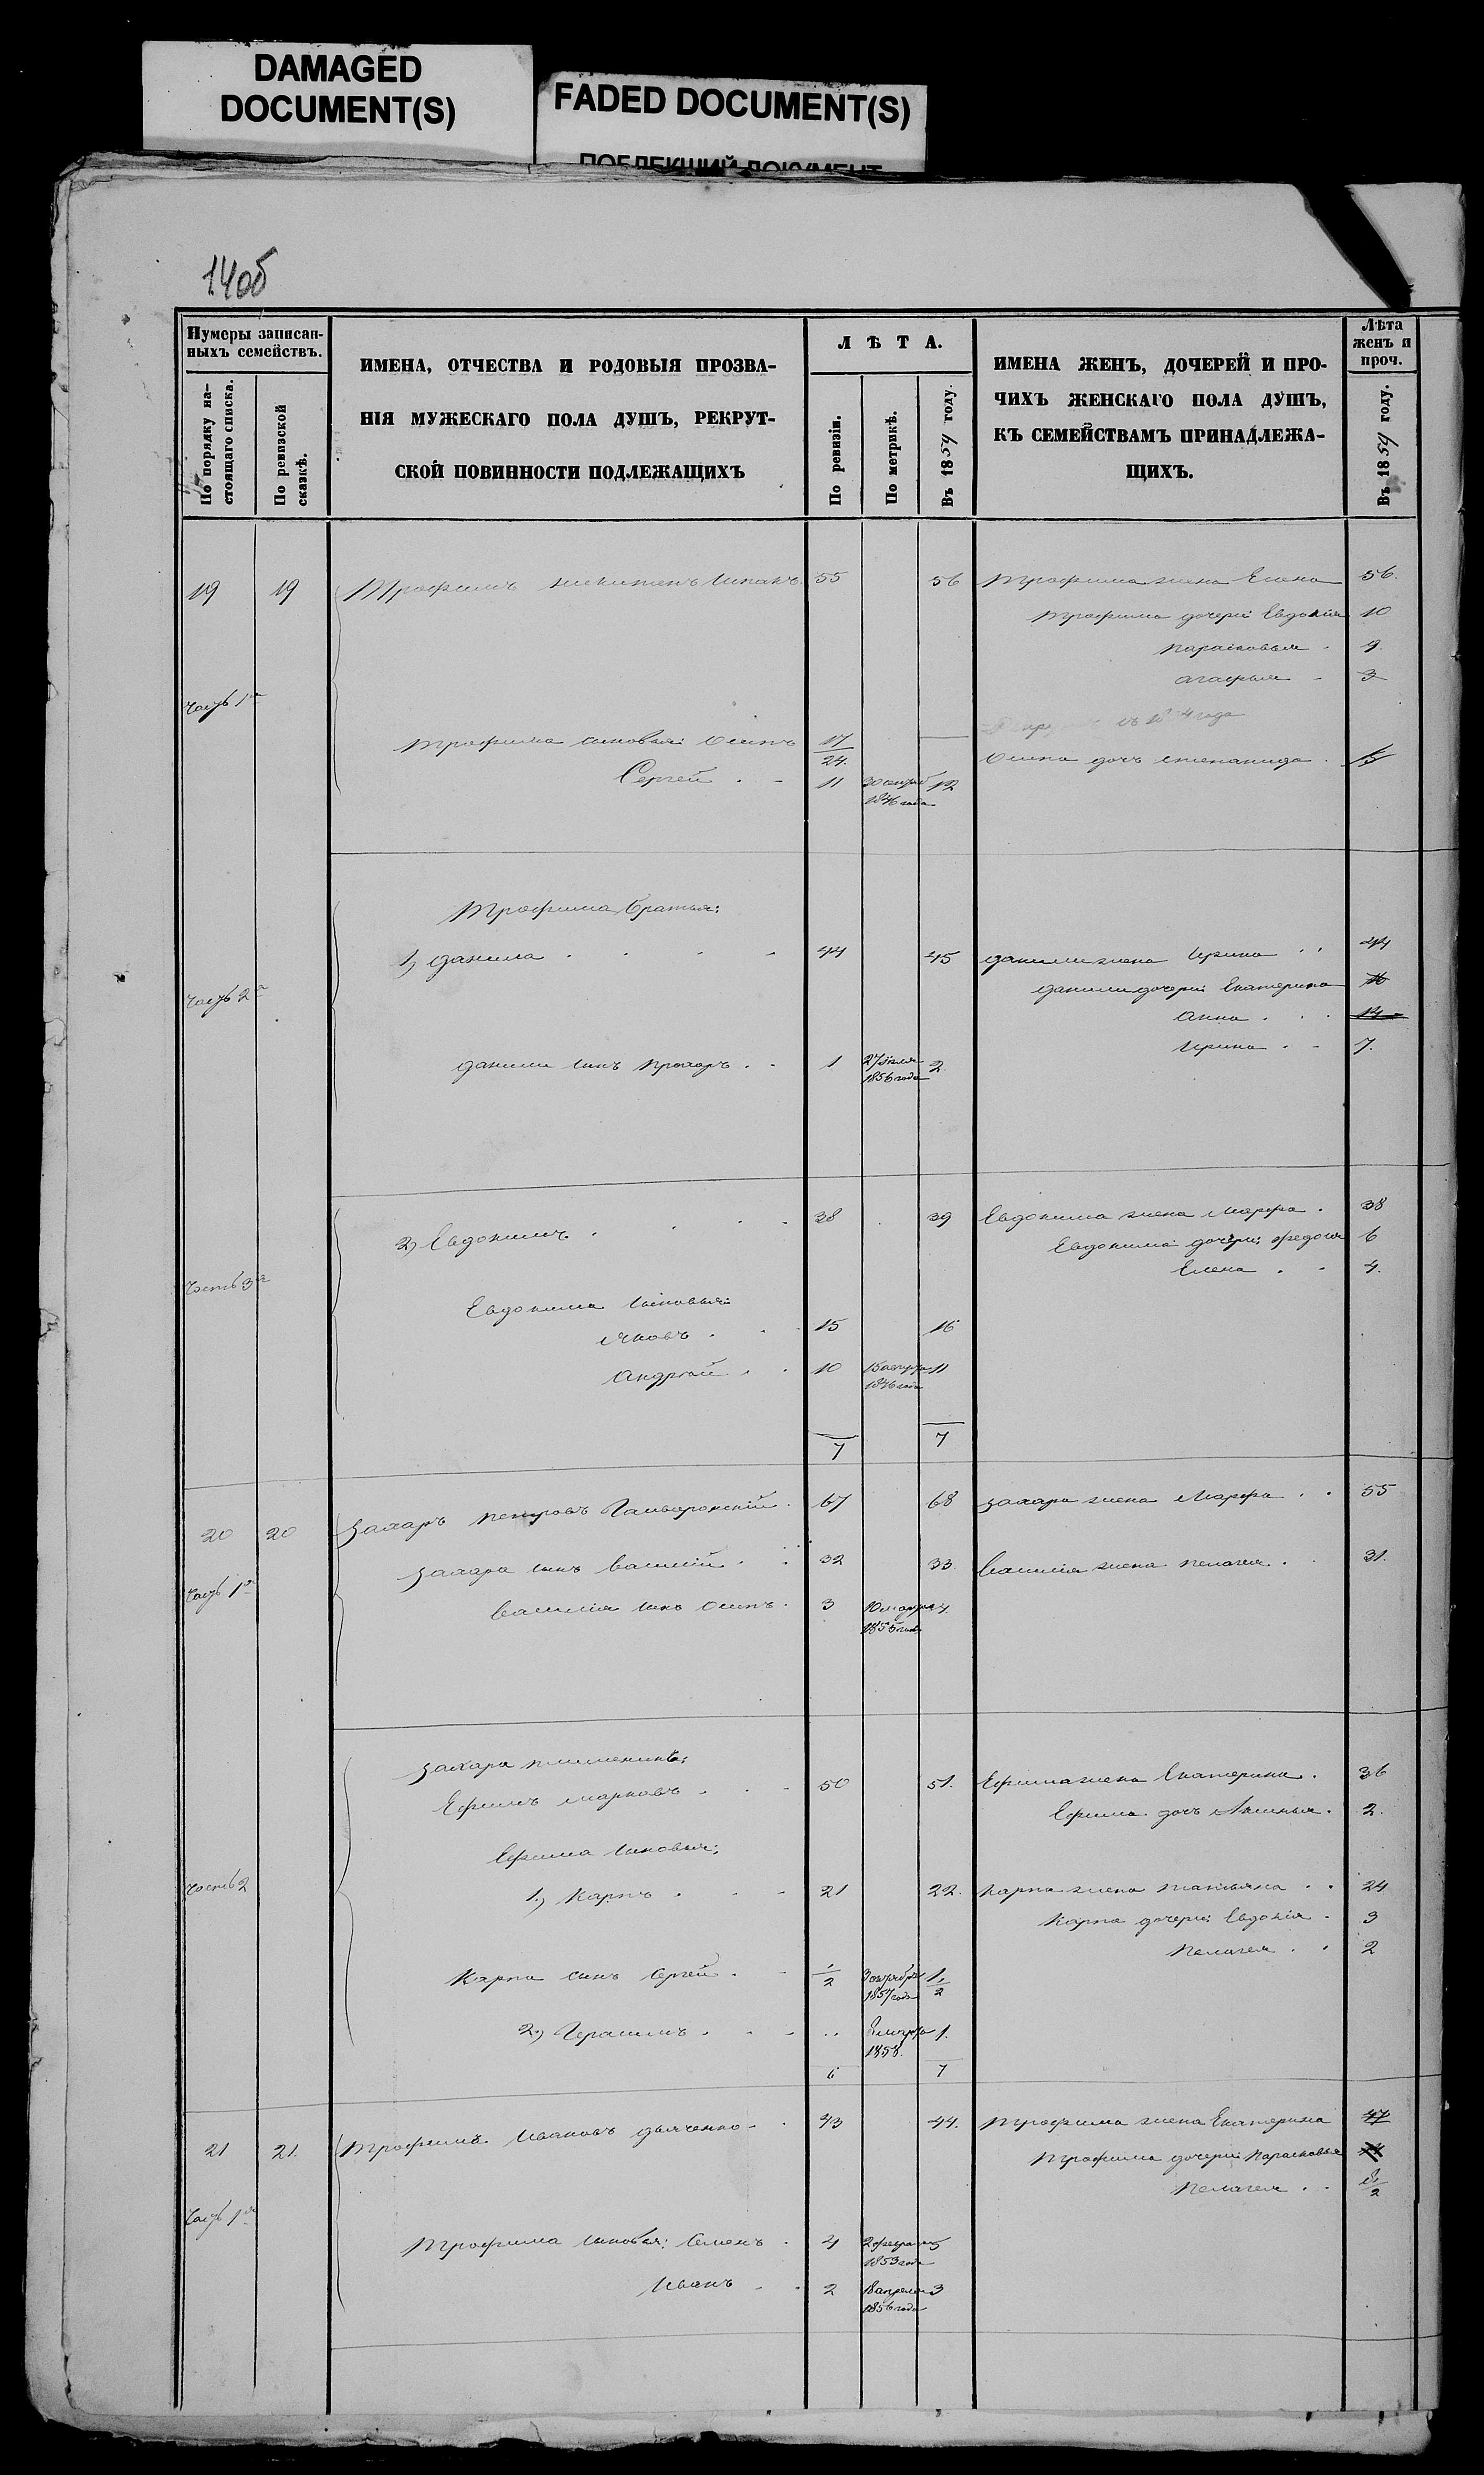 DAMAGED
DOCUMENT(S)
FADED DOCUMENT(S)
ПОБЛЕКШИЙ ДОКУМЕНТ
14об
Нумеры записан-
ныхъ семействъ.
По порядку на-
стоящаго списка.
По ревизской
сказкѣ.
ИМЕНА, ОТЧЕСТВА И РОДОВЫЯ ПРОЗВА-
НІЯ МУЖЕСКАГО ПОЛА ДУШЪ, РЕКРУТ-
СКОЙ ПОВИННОСТИ ПОДЛЕЖАЩИХЪ
ЛѢТА.
По ревизіи.
По метрикѣ.
Въ 1859 году.
ИМЕНА ЖЕНЪ, ДОЧЕРЕЙ И ПРО-
ЧИХЪ ЖЕНСКАГО ПОЛА ДУШЪ,
КЪ СЕМЕЙСТВАМЪ ПРИНАДЛЕЖА-
ЩИХЪ.
Лѣта
женъ и
проч.
Въ 1859 году.
19 19 Трофимъ Никитенъ 55 56 Трофима жена Елена 56.
Трофима дочери: Евдокія 10
Парасковья 9.
Агафья 3
Часть 1я
года
Трофима сыновья: Осипъ 17/24. Осипа дочь Степанида
Сергей 11 1846 года 12
Трофима братья:
1) Данила 44 45 Данилы жена Ирина 44
Часть 2я Данилы дочери: Екатерина
Анна 14
Ирина 7.
Данилы сынъ Прохоръ 1 27 Іюля 1856 года 2
2) Евдокимъ 38 39 Евдокима жена Марфа 38
Евдокима дочери: 6
Елена 4.
Часть 3я
Евдокима сыновья:
Яковъ 15 16
Андрей 10 15 августа 1846 года 11
7 7
20 20 Захаръ Петровъ 67 68 Захара жена Марфа 55
Захара сынъ Василій 32 33 Василія жена Пелагея 31.
Часть 1я
Василія сынъ Осипъ 3 10 марта 1855 года 4
Захара племенникъ:
Ефимъ Марковъ 50 51. Ефима жена Екатерина 36
Ефима дочь 2.
Ефима сыновья:
Часть 2
1.) Карпъ 21 22. Карпа жена Татьяна 24
Карпа дочери: Евдокія 3
Пелагея 2
Карпа сынъ Сергей 1/2 3 октября 1857 года 1 1/2
2.) Герасимъ 8 марта 1858. 1.
6 7
21 21. Трофимъ Ивановъ Дяченко 43 44. Трофима жена Екатерина 47
Трофима дочери: Парасковья
Пелагея 8 1/2
Часть 1я
Трофима сыновья: Семенъ 4 2 февраля 1853 года 5
Иванъ 2 8 апреля 1856 года 3